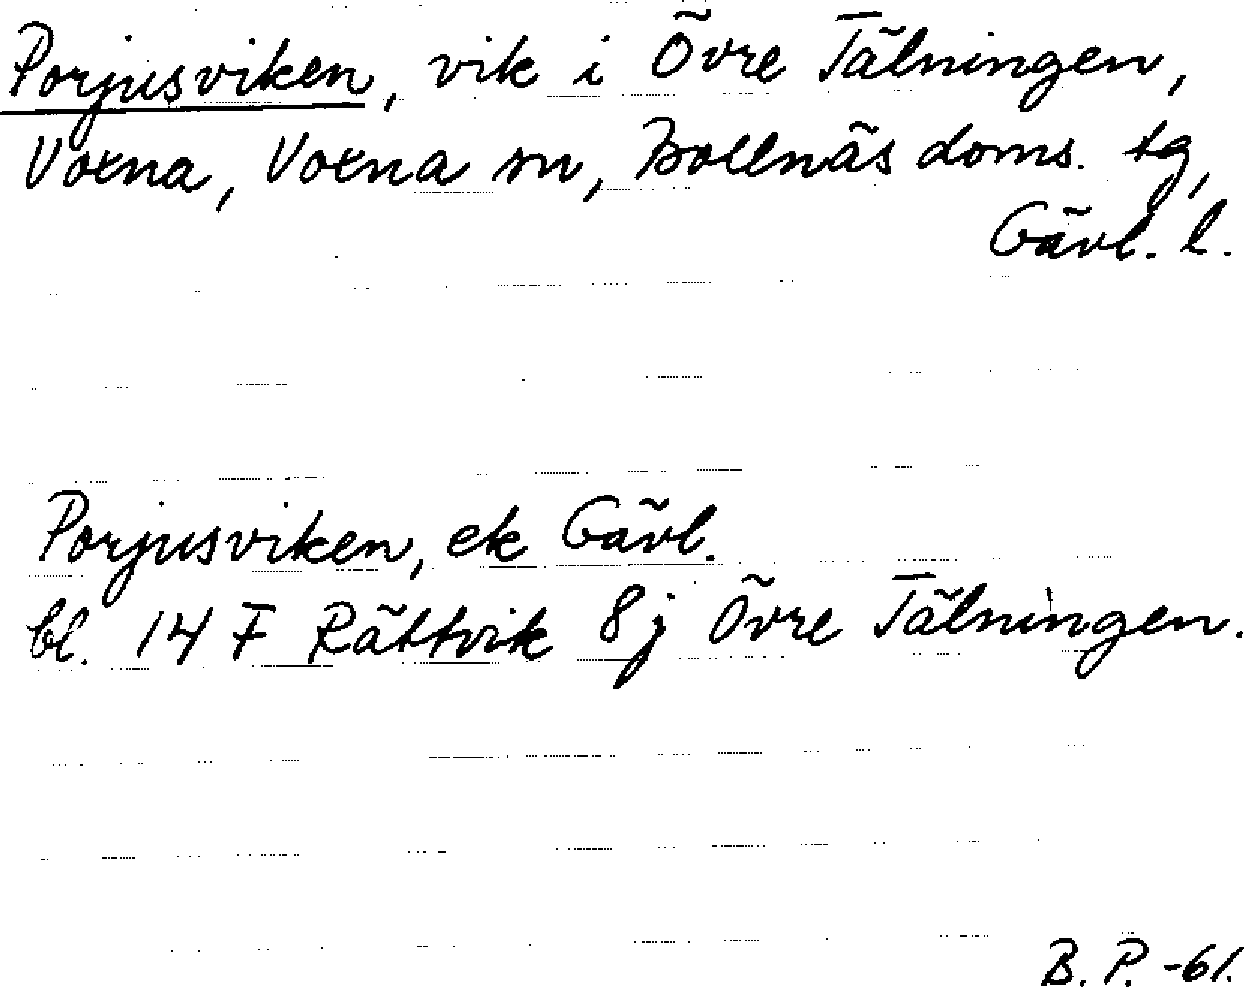 Porjusviken, vik i Övre Tälningen,
Voxna, Voxna sn, Bollnäs doms. tg,
Gävl. l.
Porjusviken, ek Gävl.
bl. 14 F Rättvik 8j Övre Tälningen.
B. P. -61.